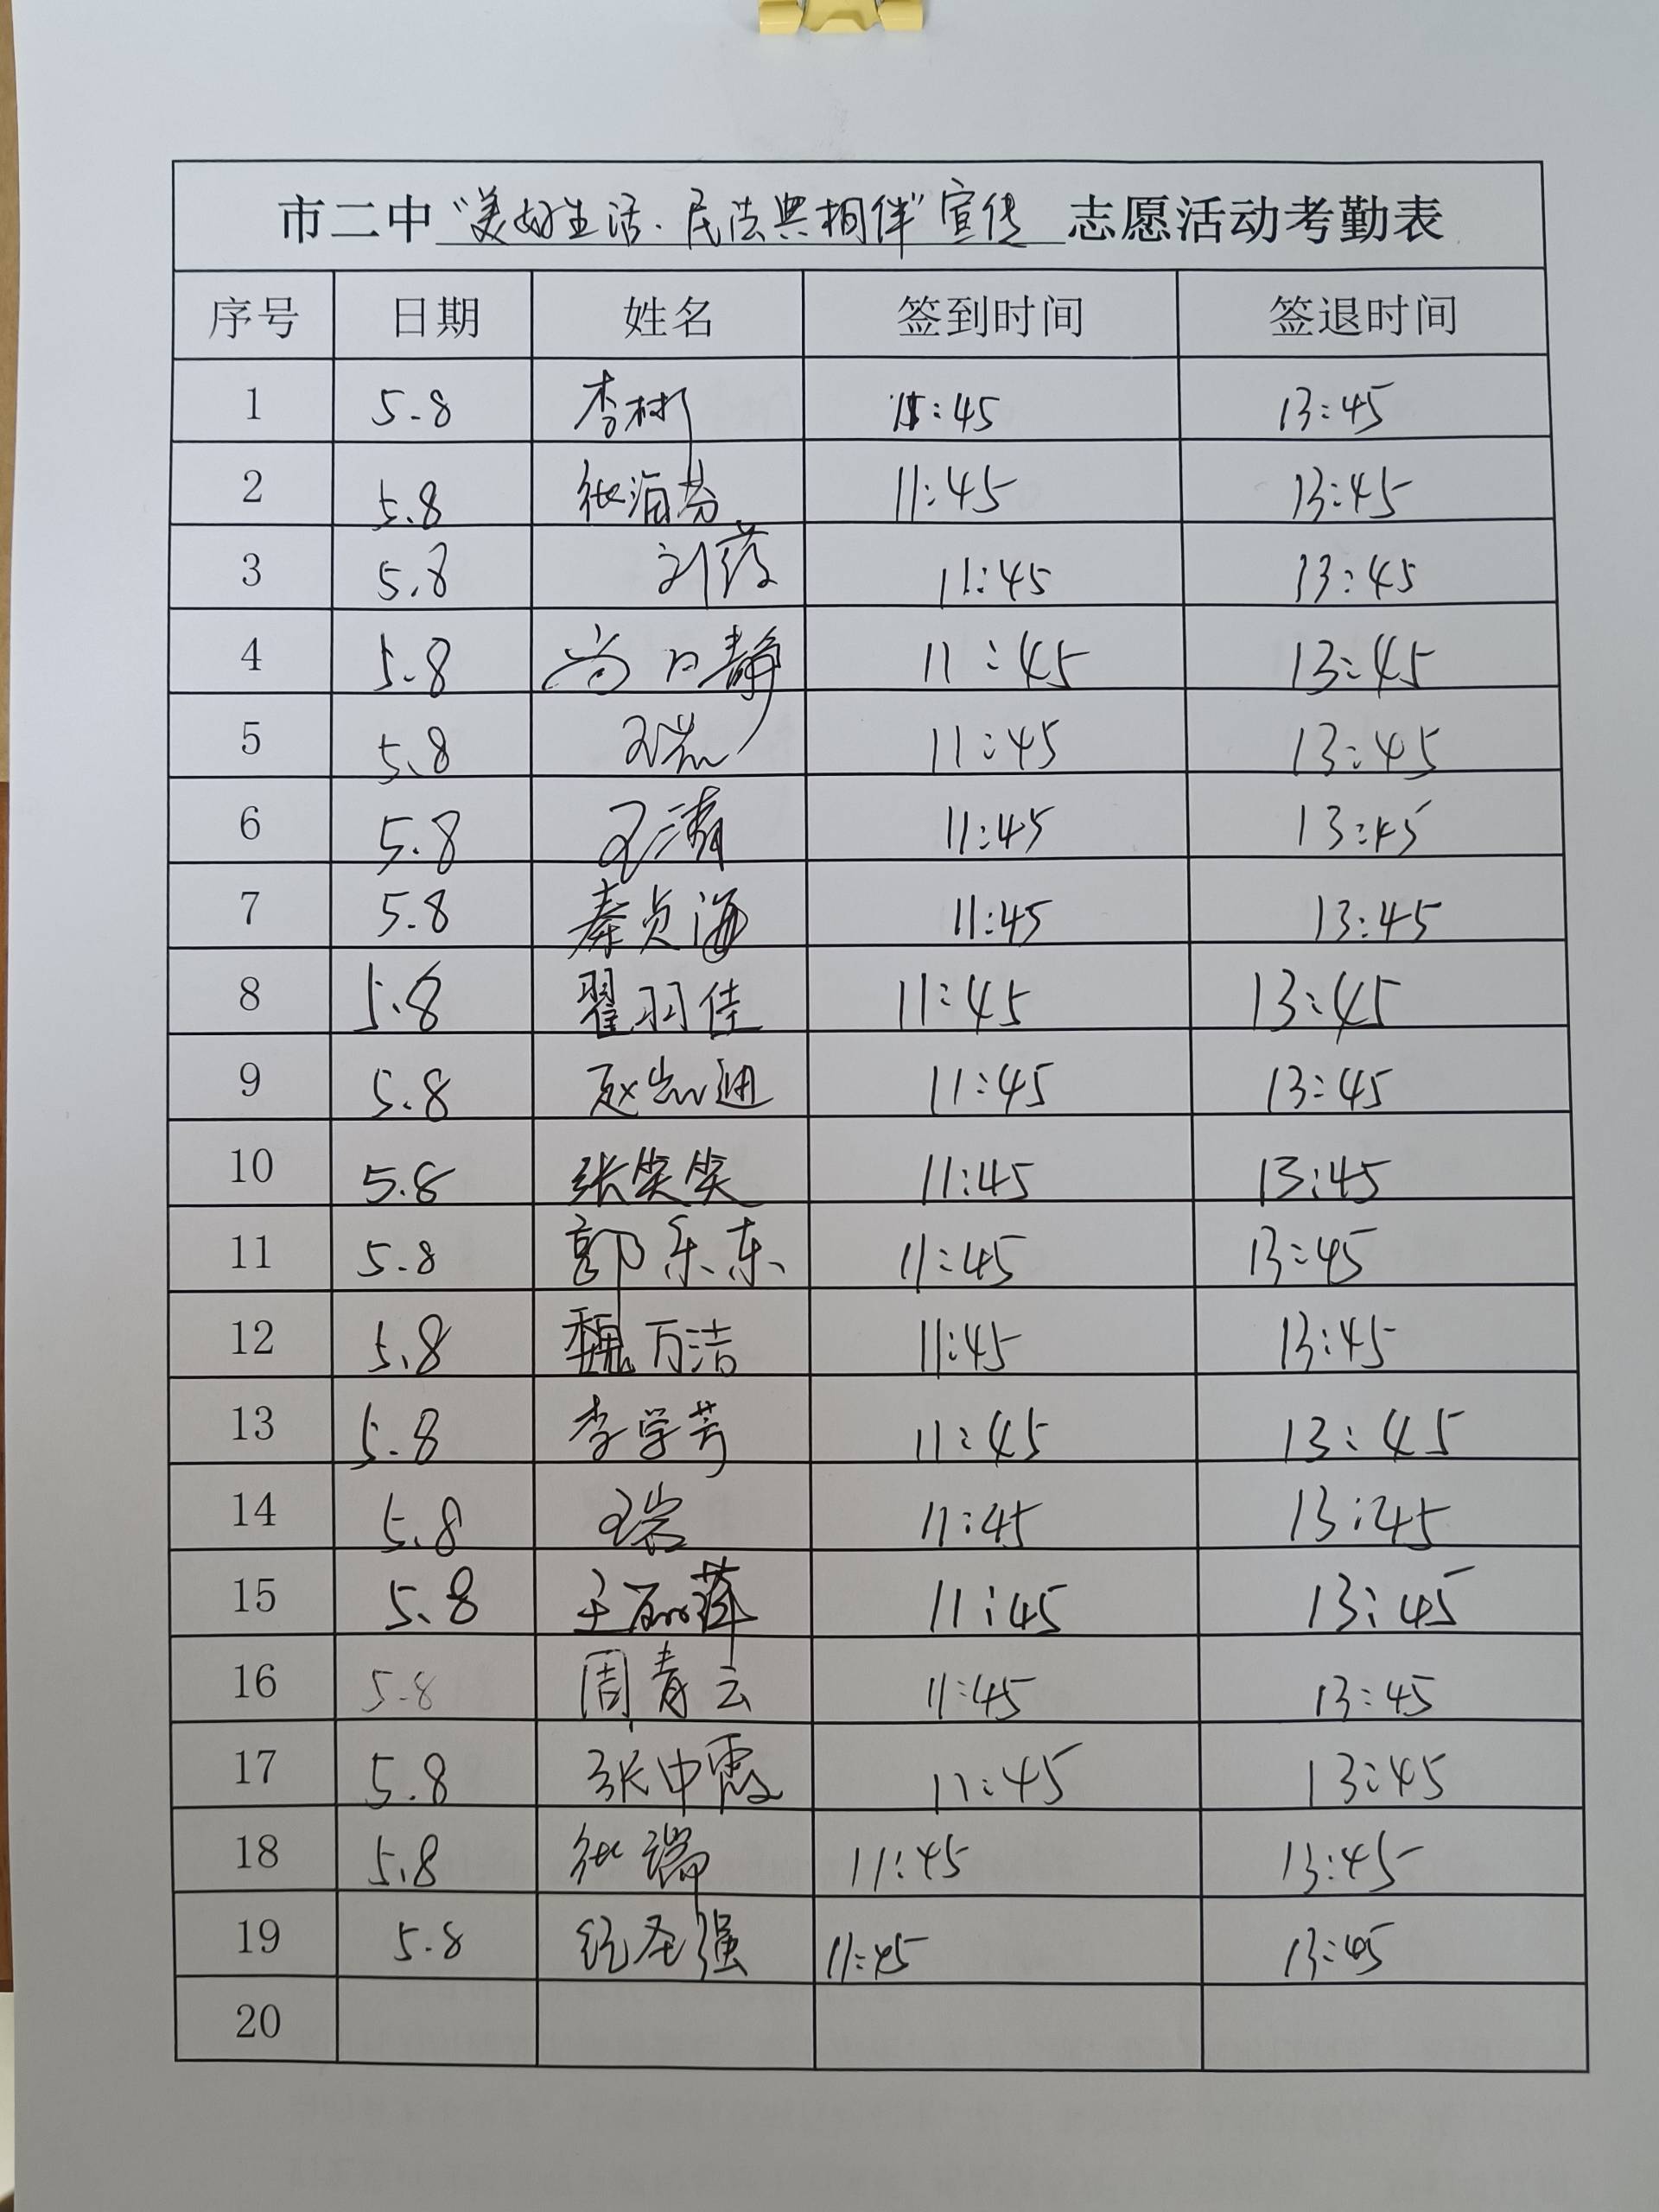 市二中“美好生活·民法典相伴”宣传志愿活动考勤表
序号 日期 姓名 签到时间 签退时间
1 5.8 李彬 11:45 13:45
2 5.8 张海芬 11:45 13:45
3 5.8 刘 11:45 13:45
4 5.8 静 11:45 13:45
5 5.8 11:45 13:45
6 5.8 王清 11:45 13:45
7 5.8 秦贞海 11:45 13:45
8 5.8 翟羽佳 11:45 13:45
9 5.8 赵志迪 11:45 13:45
10 5.8 张笑笑 11:45 13:45
11 5.8 郭乐东 11:45 13:45
12 5.8 魏万洁 11:45 13:45
13 5.8 李学芳 11:45 13:45
14 5.8 11:45 13:45
15 5.8 王丽萍 11:45 13:45
16 5.8 周青云 11:45 13:45
17 5.8 张中霞 11:45 13:45
18 5.8 张瑞 11:45 13:45
19 5.8 纪圣强 11:45 13:45
20